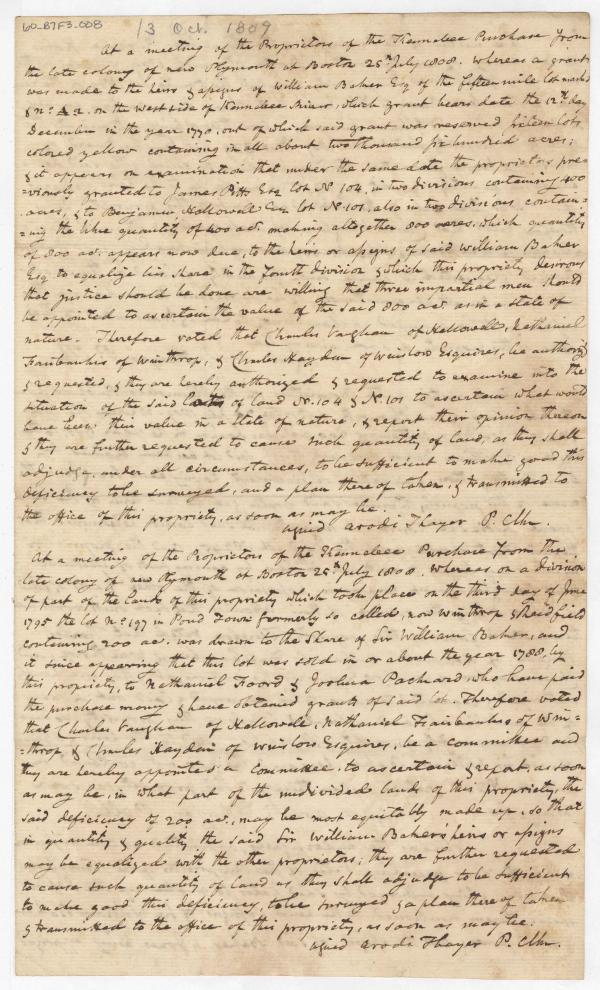 60-B7F3-008
13 Oct. 1809
At a meeting of the Proprietors of the Kennebec Purchase from
the late colony of new Plymouth at Boston 25th July 1808. Whereas a grant
was made to the heirs & assigns of William Baker Esq of the fifteen mile lot marked
& No. A 2. on the west side of Kennebec River, which grant bears date the 12th day
December in the year 1770, out of which said grant was reserved fifteen lots
colored yellow containing in all about two thousand six hundred acres;
& it appears on examination that under the same date the proprietors pre
=viously granted to James Pitts Esq lot No. 104, in two divisions containing 400
acres, & to Benjamin Hallowell Esq lot No. 101, also in two divisions contain=
=ing the like quantity of 400 acs. making altogether 800 acres, which quantity
of 800 acs. appears now due, to the heirs or assigns of said William Baker
Esq to equalize his share in the fourth division & which this propriety desirous
that justice should be done are willing that three impartial men should
be appointed to ascertain the value of the said 800 acs. as in a state of
nature. Therefore voted that Charles Vaughan of Hallowell, Nathaniel
Fairbanks of Winthrop, & Charles Hayden of Winslow Esquires, be authorizd
& requested, & they are hereby authorized & requested to examine into the
situation of the said lots of land No. 104 & No. 101 to ascertain what would
have been their value in a state of nature, & report their opinion thereon
& they are further requested to cause such quantity of land, as they shall
adjudge, under all circumstances, to be sufficient to make good this
deficiency to be surveyed, and a plan there of taken, & transmitted to
the office of this propriety, as soon as may be.
signed Arodi Thayer P. Clk.
At a meeting of the Proprietors of the Kennebec Purchase from the
late colony of new Plymouth at Boston 25th July 1808. Whereas on a division
of part of the lands of this propriety which took place on the third day of June
1795 the lot No. 197 in Pond Town formerly so called, now Winthrop & Readfield
containing 200 acs. was drawn to the share of Sir William Baker, and
it since appearing that this lot was sold in or about the year 1788, by
this propriety, to Nathaniel Foord & Joshua Packard who have paid
the purchase money & have obtained grants of said lot. Therefore voted
that Charles Vaughan of Hallowell, Nathaniel Fairbanks of Win=
=throp & Charles Hayden of Winslow Esquires, be a committee and
they are hereby appointed a committee, to ascertain & report, as soon
as may be, in what part of the undivided lands of this propriety, the
said deficiency of 200 acs., may be most equitably made up, so that
in quantity & quality, the said Sir William Bakers heirs or assigns
may be equalized with the other proprietors; they are further requested
to cause such quantity of land as they shall adjudge to be sufficient
to make good this deficiency, to be surveyed & a plan there of taken
& transmitted to the office of this propriety, as soon as may be.
signed Arodi Thayer P. Clk.